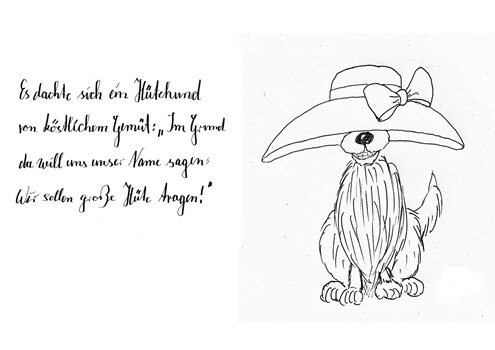 Es dachte sich ein Hütehund
von köstlichem Gemüt: „Im Grund
da will uns unser Name sagen:
Wir sollen große Hüte tragen!“